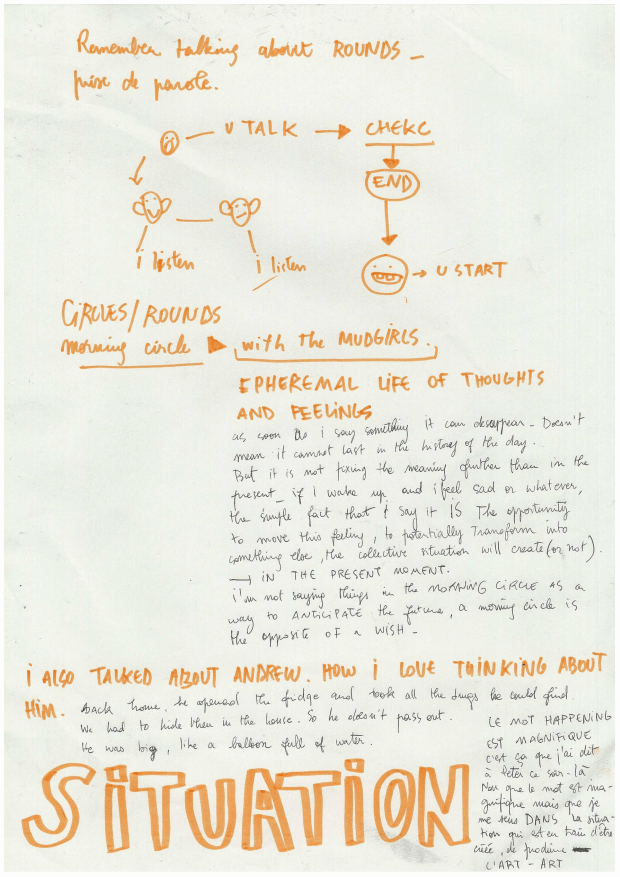 Remember talking about ROUNDS _
prise de parole.
U TALK
CHEKC
END
i listen
i listen
U START
CiRCLES/ROUNDS
morning circle
with the MUDGIRLS.
EPHEREMAL LIFE OF THOUGHTS
AND FEELINGS
as soon as i say something it can desappear_ Doesn't
mean it cannot last in the history of the day.
But it is not fixing the meaning further than in the
present_ if I wake up and i feel sad or whatever,
the simple fact that I say it IS The opportunity
to move this feeling, to potentially Transform into
something else, the collective situation will create (or not).
→ IN THE PRESENT MOMENT.
i'm not saying things in the MORNING CIRCLE AS a
way to ANTICIPATE the future, a morning circle is
the opposite OF a WISH_
i ALSO TALKED ABOUT ANDREW. HOW i LOVE THINKING ABOUT
HIM.
back home, he opened the fridge and took all the drugs he could find.
We had to hide them in the house. So he doesn't pass out.
He was big, like a balloon full of water.
SiTUATION
LE MOT HAPPENING
EST MAGNIFIQUE
c'est ça que j'ai dit
à ce soir-là
Non que le mot est ma-
gnifique mais que je
me sens DANS la situa-
tion qui est en train d'être
créée, de produire
L'ART - ART